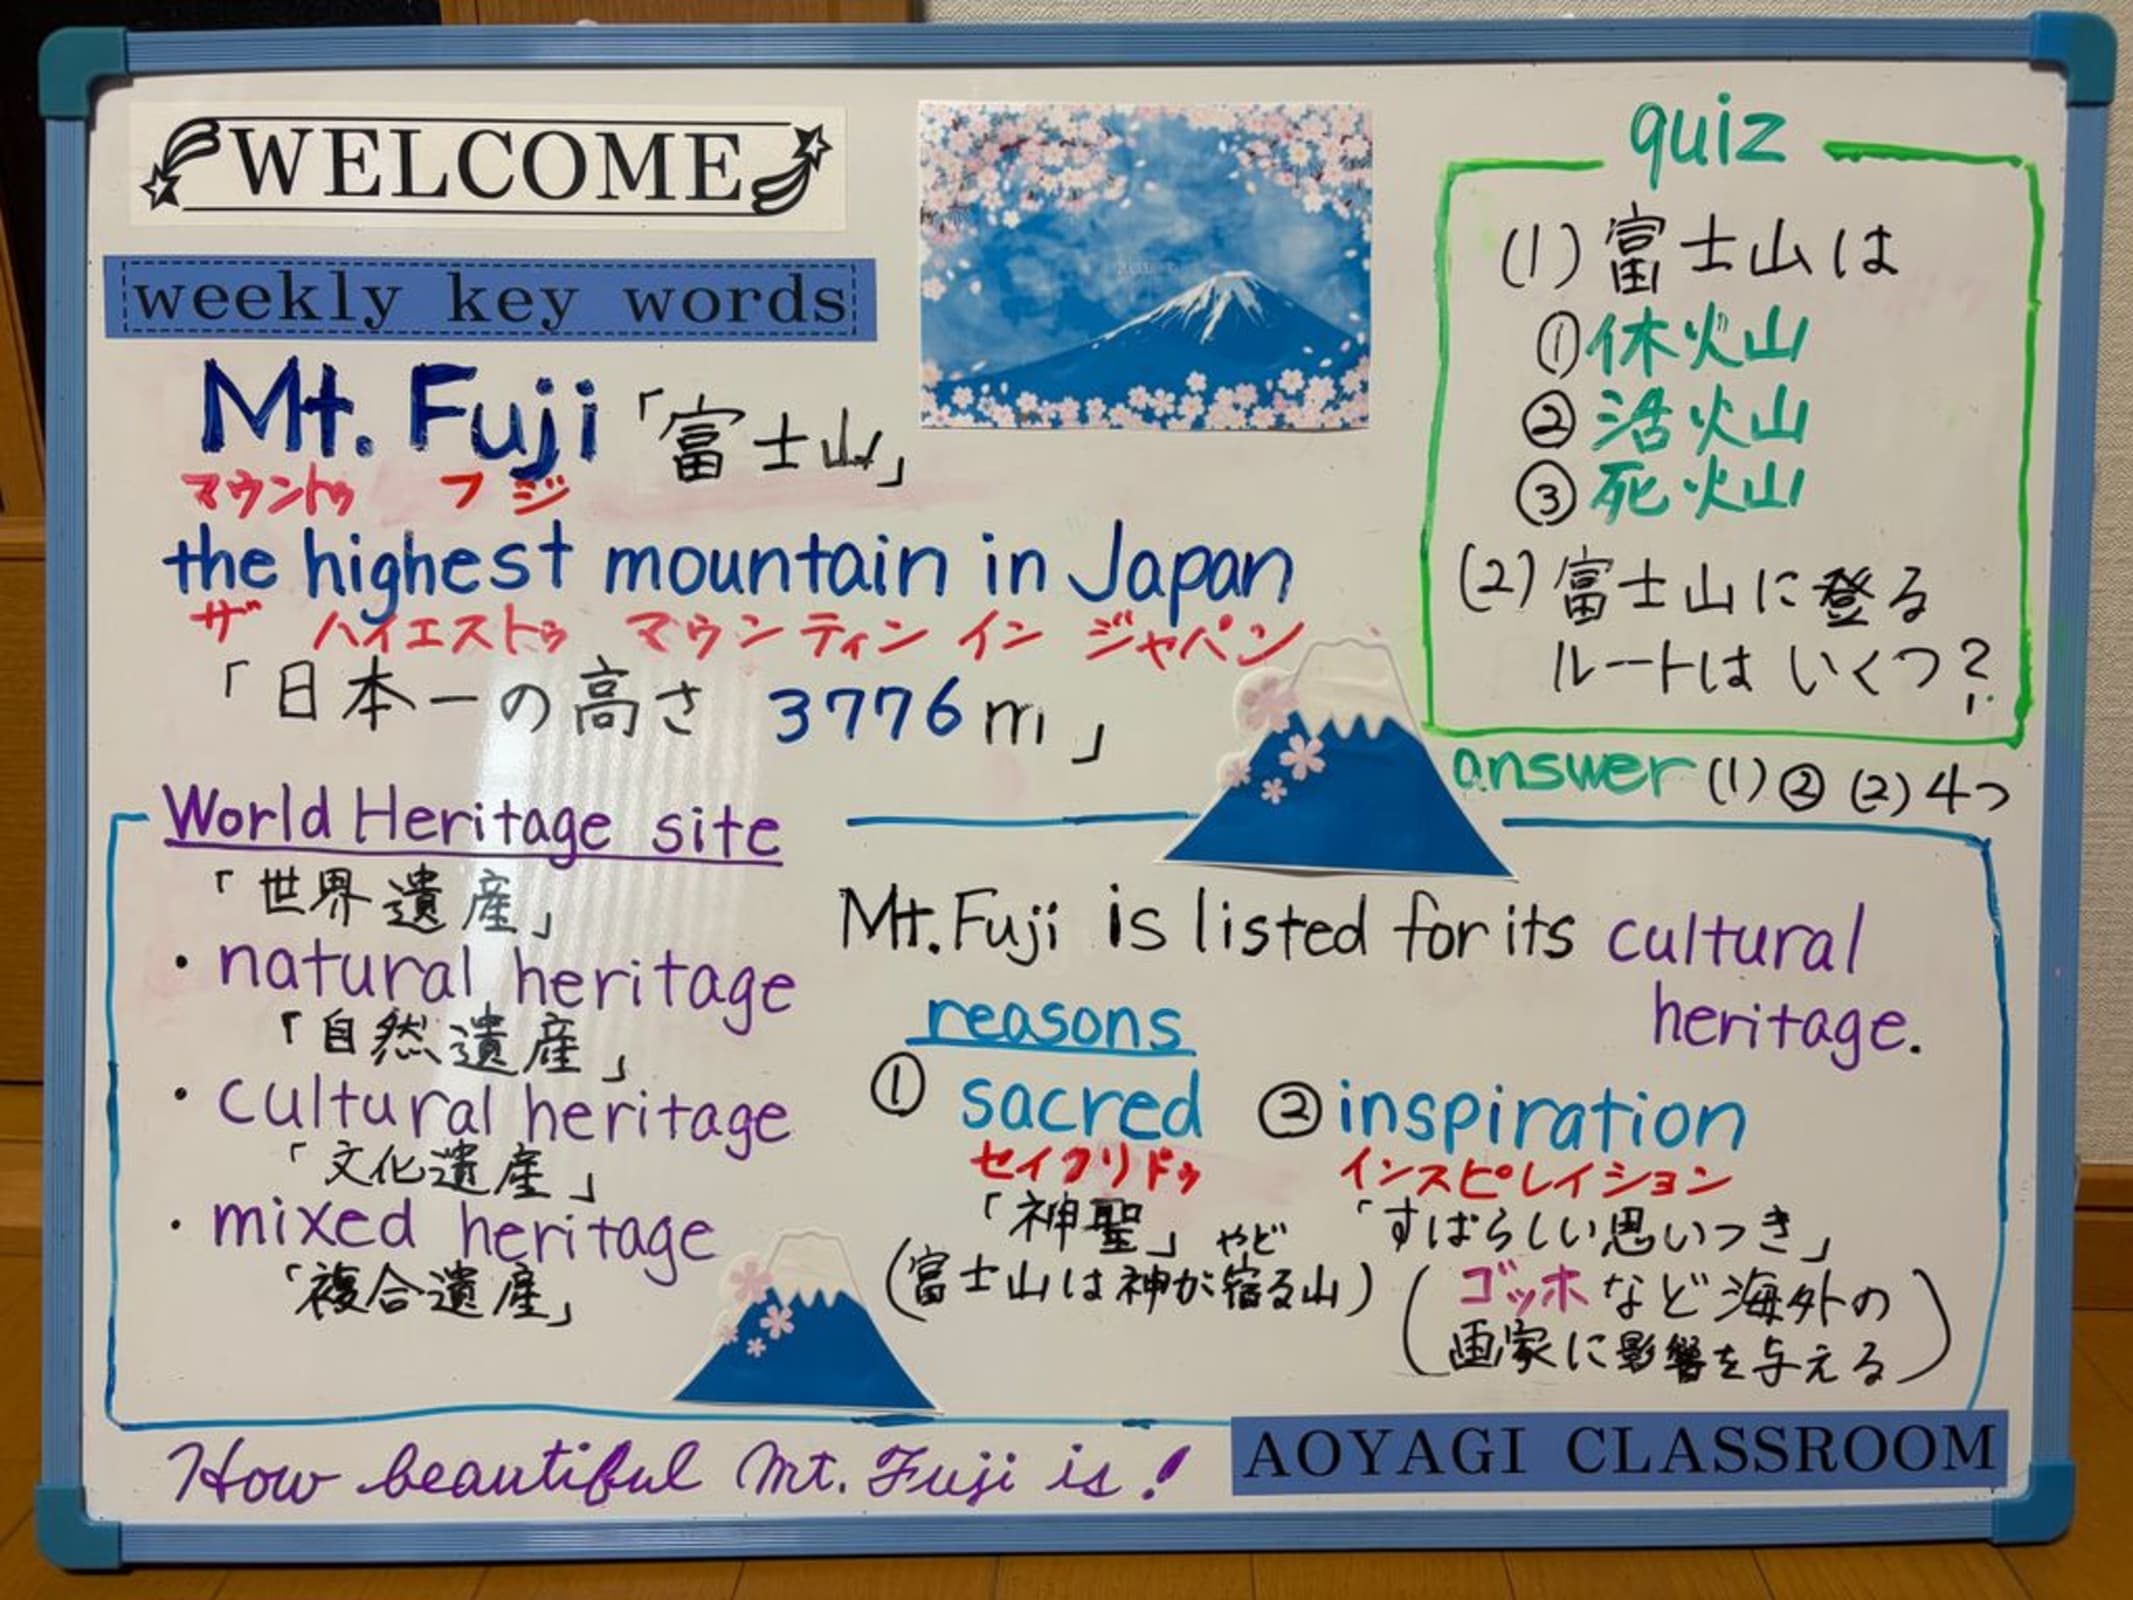 WELCOME
weekly key words
Mt. Fuji「富士山」
マウントゥ フジ
the highest mountain in Japan
ザ ハイエストゥ マウンティン イン ジャパン
「日本一の高さ 3776m」
quiz
(1)富士山は
①休火山
②活火山
③死火山
(2)富士山に登る
ルートはいくつ?
answer (1)② (2)4つ
World Heritage site
「世界遺産」
・natural heritage
「自然遺産」
・cultural heritage
「文化遺産」
・mixed heritage
「複合遺産」
Mt. Fuji is listed for its cultural
heritage.
reasons
① sacred
セイクリドゥ
「神聖」
やど
(富士山は神が宿る山)
② inspiration
インスピレイション
「すばらしい思いつき」
(ゴッホなど海外の
画家に影響を与える)
How beautiful Mt. Fuji is!
AOYAGI CLASSROOM